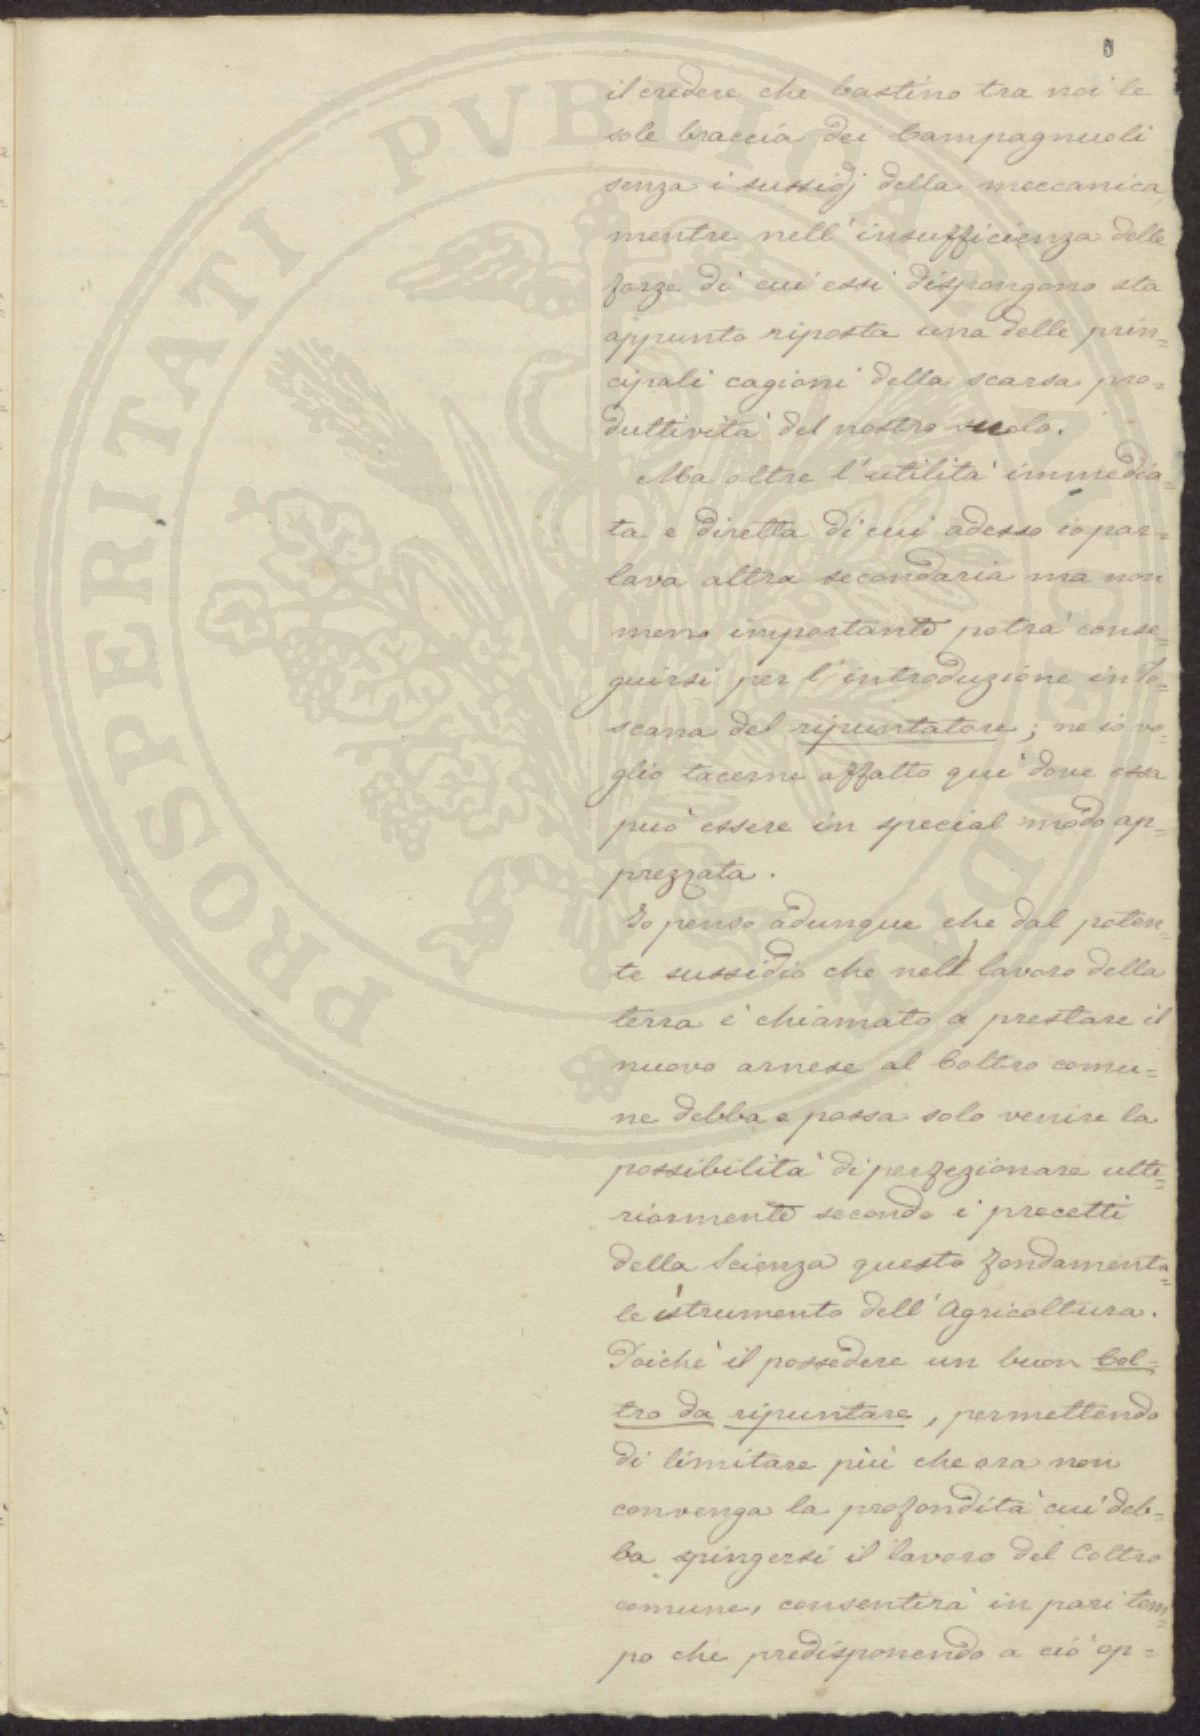 il credere che bastino tra noi le
sole braccia dei Campagnuoli
senza i sussidj della meccanica
mentre nell'insufficienza delle
forze di cui essi dispongono sta
appunto riposta una delle prin=
cipali cagioni della scarsa pro=
duttività del nostro suolo.
Ma oltre l'utilità immedia=
ta e diretta di cui adesso io par=
lava altra secondaria ma non
meno importante potrà conse=
guirsi per l'introduzione in To=
scana del ripuntatore; ne io vo=
glio tacerne affatto qui dove essa
può essere in special modo ap=
prezzata.
Io penso adunque che dal poten=
te sussidio che nell lavoro della
terra è chiamato a prestare il
nuovo arnese al Coltro comu=
ne debba e possa solo venire la
possibilità di perfezionare ulte=
riormente secondo i precetti
della Scienza questo fondamenta=
le istrumento dell'Agricoltura.
Poichè il possedere un buon Col=
tro da ripuntare, permettendo
di limitare più che ora non
convenga la profondità cui deb=
ba spingersi il lavoro del Coltro
comune, consentirà in pari tem=
po che predisponendo a ciò op=
PROSPERITATI PVBLICAE AVGENDAE